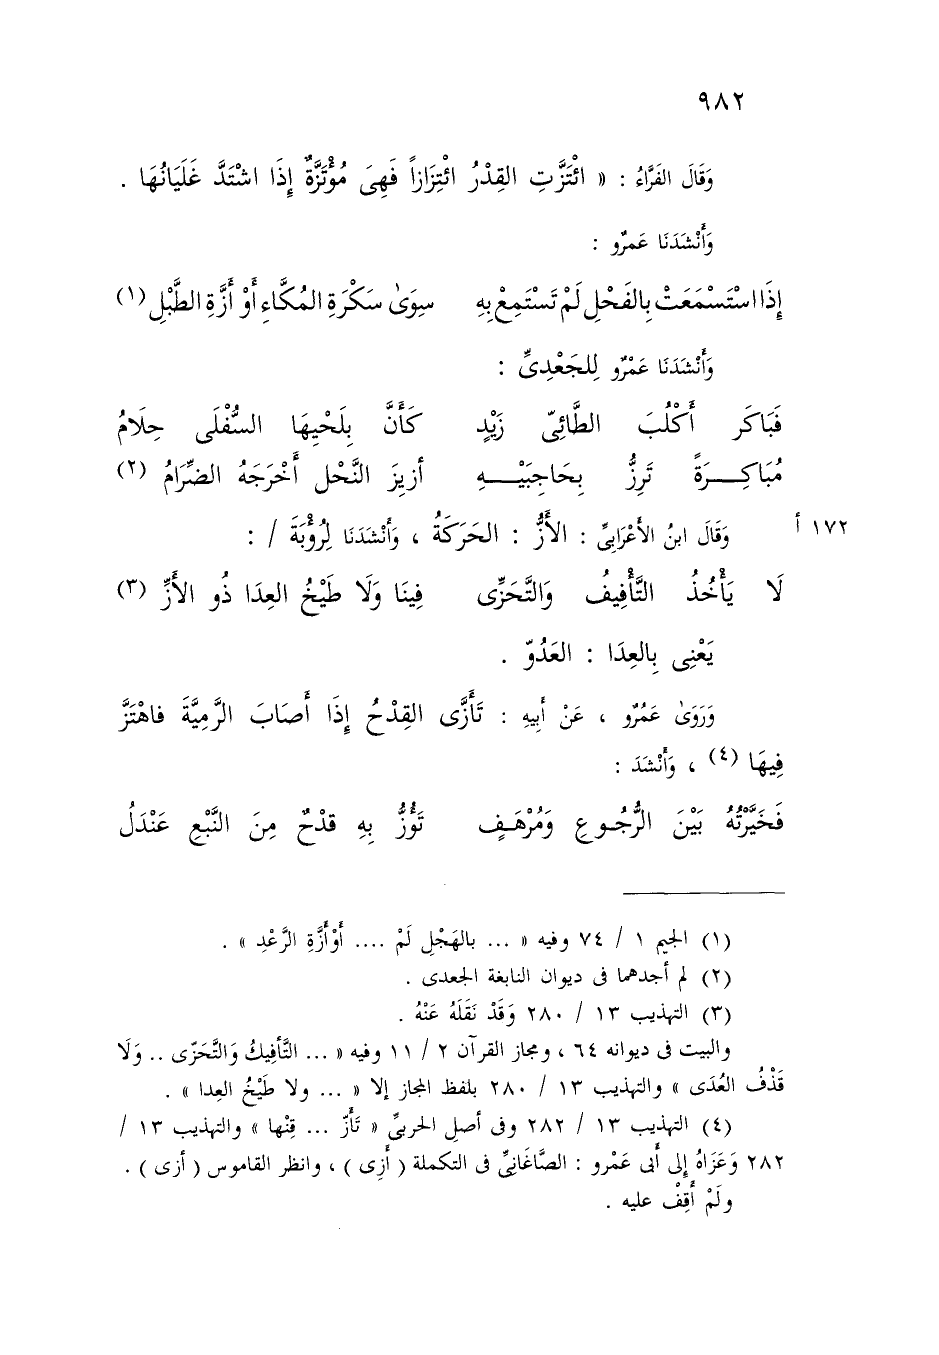 ٩٨٢
وَقَالَ الفَرَّاءُ : « ائْتَزَّتِ القِدْرُ ائْتِزَازاً فَهِىَ مُؤْتَزَّةٌ إِذَا اشْتَدَّ غَلَيَانُهَا .
وَأَنْشَدَنَا عَمرٌو :
إِذَا اسْتَسْمَعَتْ بِالفَحْلِ لَمْ تَسْتَمِعْ بِهِ سِوَىٰ سَكْرَةِ المُكَّاءِ أَوْ أَزَّةِ الطَّبْلِ (١)
وَأَنْشَدَنَا عَمْرٌو لِلجَعْدِىِّ :
فَبَاكَرَ أَكْلُبَ الطَّائِىِّ زَيْدٍ كَأَنَّ بِلَحْيِهَا السُّفْلَى حِلَامُ
مُبَاكِرَةً تَرِزُّ بِحَاجِبَيْهِ أزِيزَ النَّحْل أَخْرَجَهُ الضِّرَامُ (٢)
وَقَالَ ابنُ الأَعْرَابِىِّ : الأَزُّ : الحَرَكَةُ ، وَأَنْشَدَنَا لِرُؤْبَةَ / : ١٧٢ أ
لَا يَأْخُذُ التَّأْفِيفُ وَالتَّحَزِّى فِينَا وَلَا طَيْخُ العِدَا ذُو الأَزِّ (٣)
يَعْنِى بِالعِدَا : العَدُوّ .
وَرَوَىٰ عَمْرٌو ، عَنْ أَبِيهِ : تَأَزَّى القِدْحُ إِذَا أَصَابَ الرَّمِيَّةَ فاهْتَزَّ
فِيهَا (٤) ، وَأَنْشَدَ :
فَخَيَّرْتُهُ بَيْنَ الرُّجُوعِ وَمُرْهَفٍ تَؤُزُّ بِهِ قدْحٌ مِنَ النَّبْعِ عَنْدَلُ
(١) الجيم ١ / ٧٤ وفيه « ... بالهَجْلِ لَمْ .... أَوْأَزَّةِ الرَّعْدِ » .
(٢) لم أجدهما فى ديوان النابغة الجعدى .
(٣) التهذيب ١٣ / ٢٨٠ وَقَدْ نَقَلَهُ عَنْهُ .
والبيت فى ديوانه ٦٤ ، ومجاز القرآن ٢ / ١١ وفيه « ... التَّأفِيكُ وَالتَّحَزّى .. وَلَا
قَذْفُ العُدَى » والتهذيب ١٣ / ٢٨٠ بلفظ المجاز إلا « ... ولا طَيْخُ العِدا » .
(٤) التهذيب ١٣ / ٢٨٢ وفى أصلِ الحربىِّ « تَأَزّ ... قِنْها » والتهذيب ١٣ /
٢٨٢ وَعَزَاهُ إِلى أبى عَمْرو : الصَّاغَانِىِّ فى التكملة ( أَزِى ) ، وانظر القاموس ( أزى ) .
ولَمْ أَقِفْ عليه .